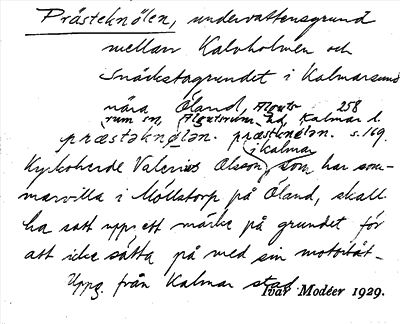 Prästeknölen, undervattensgrund
mellan Kalvholmen och
Snäckstagrundet i Kalmarsund
nära Öland, Alguts- 258
rum sn, Algutsrum hd, Kalmar l. s. 169.
præstəknølən. præstknølən.
Kyrkoherde Valerius Olsson i Kalmar, som har som-
marvilla i Möllstorp på Öland, skall
ha satt upp ett märke på grundet för
att icke sätta på med sin motorbåt.
Uppg. från Kalmar stad.
Ivar Modéer 1929.